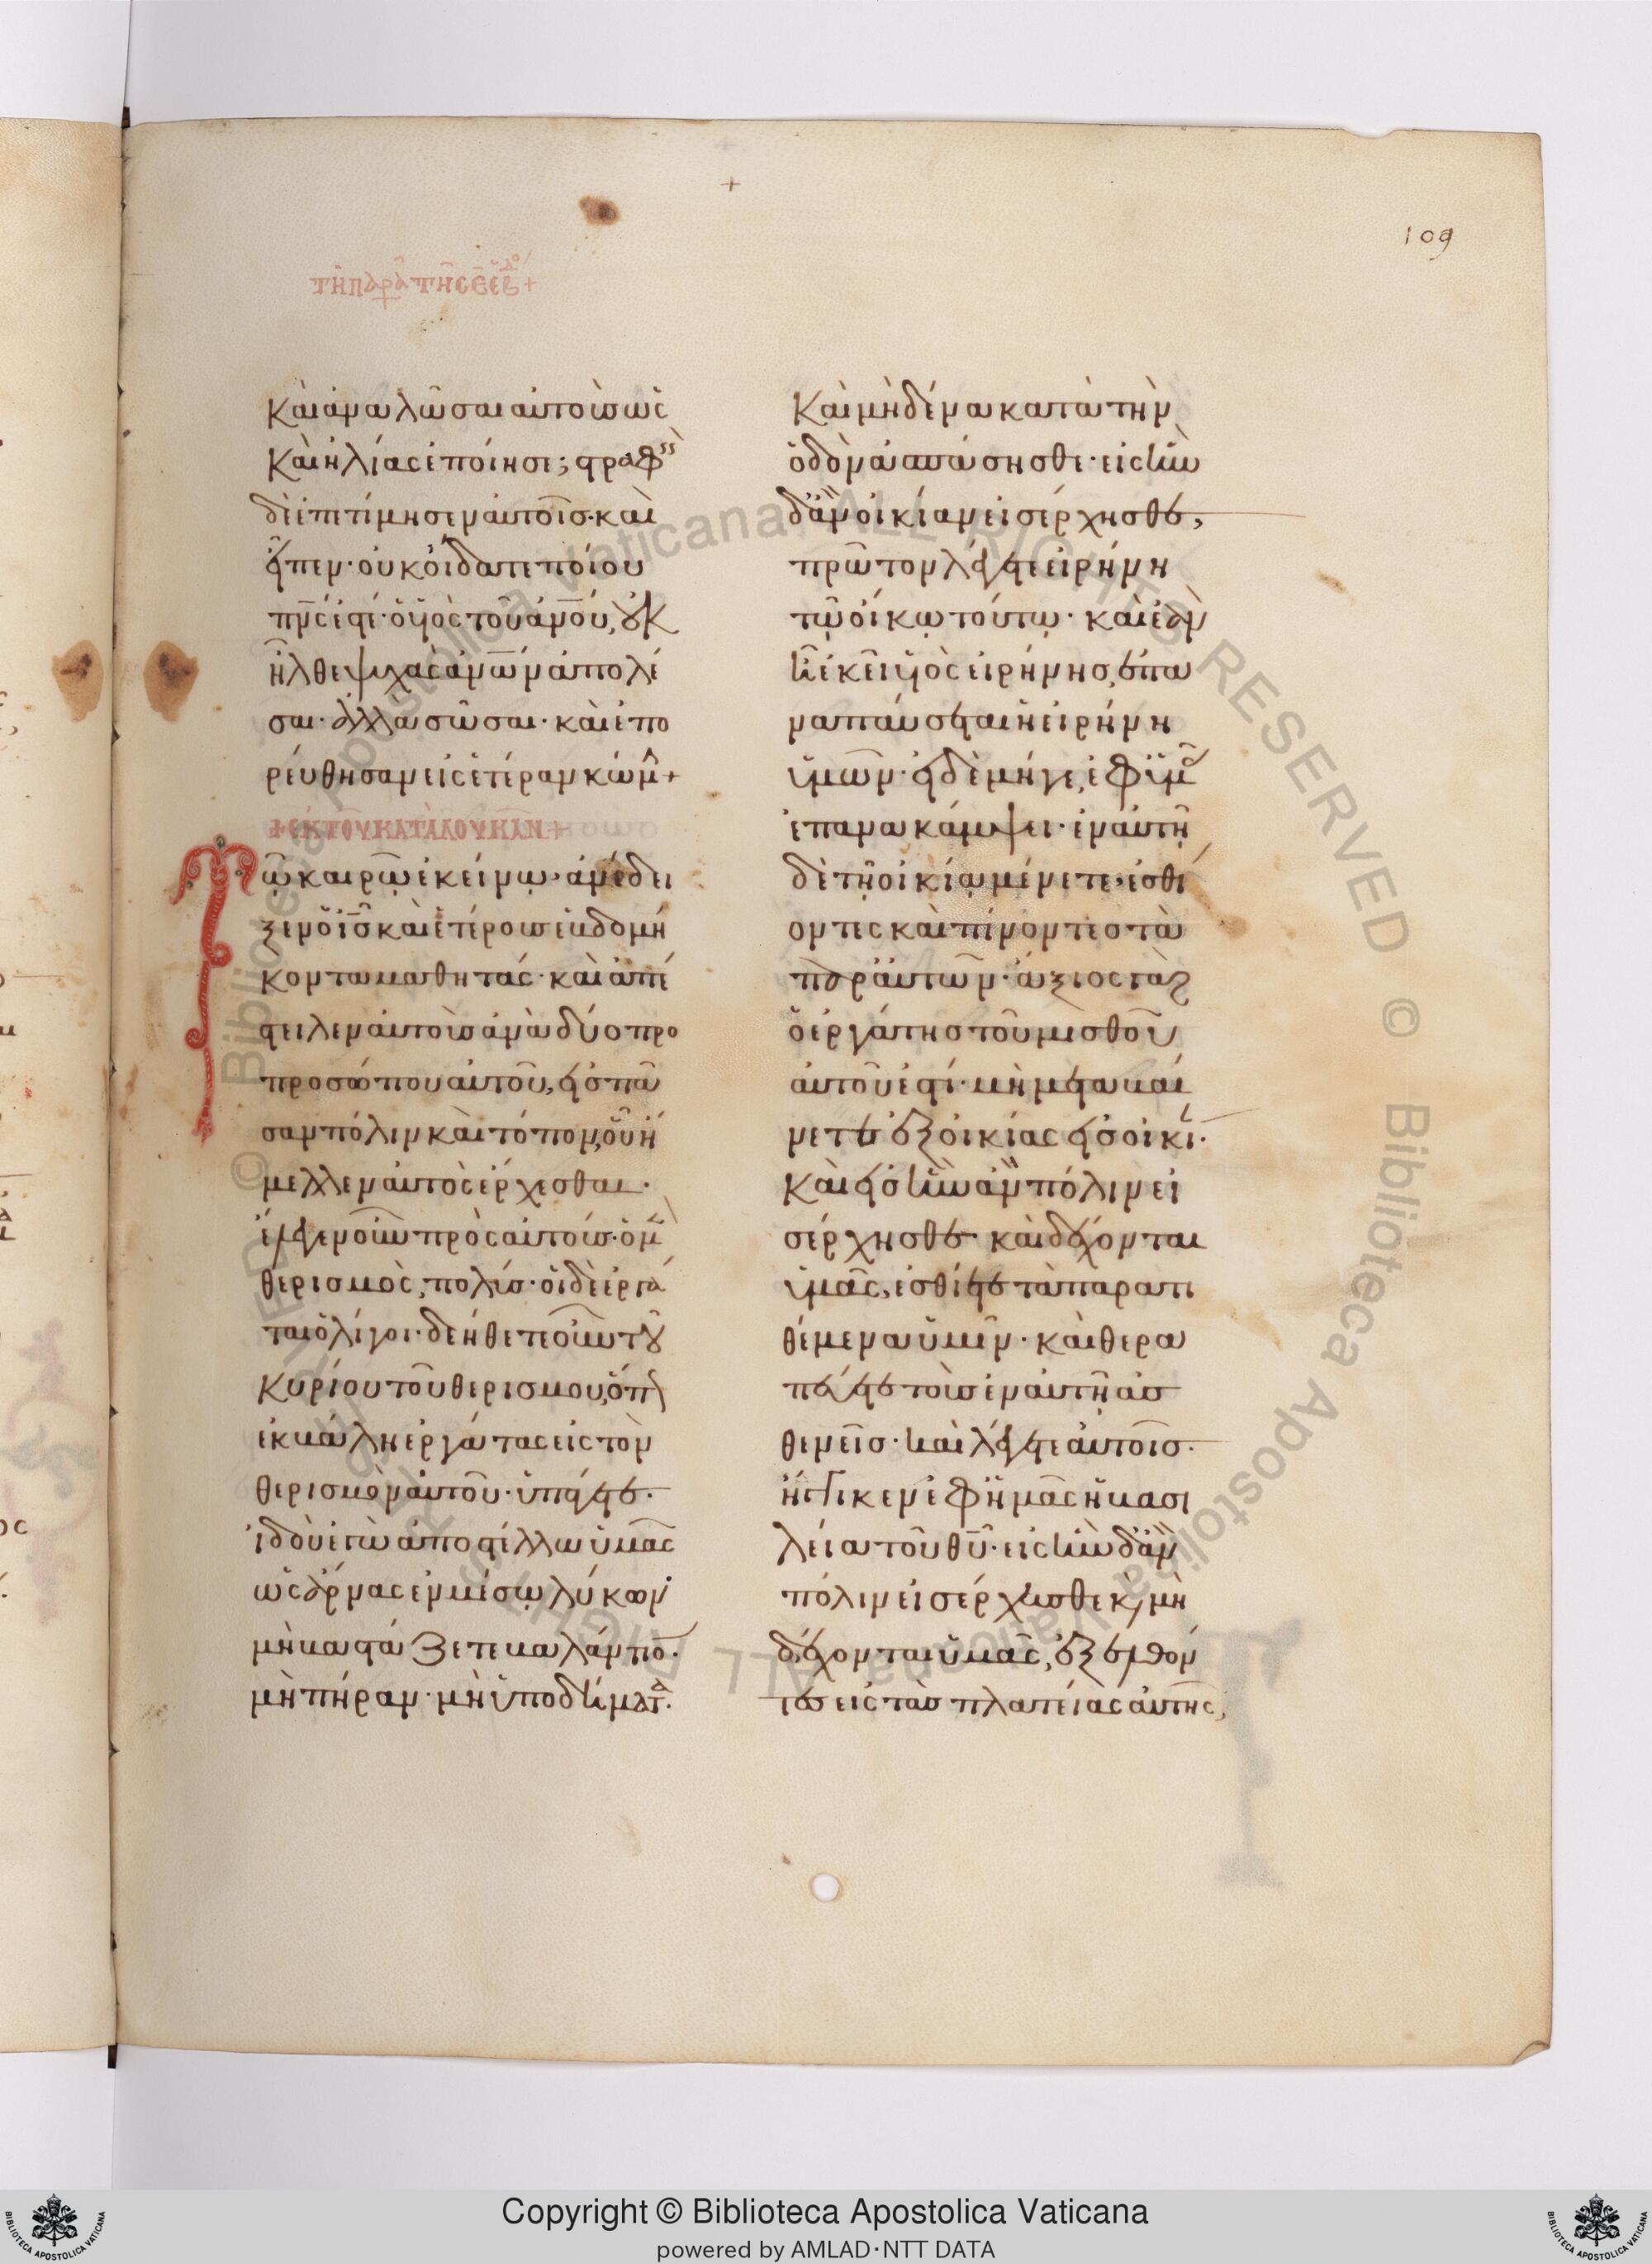 109
τῆ παρα τῆς ε εβδο +
Καὶ ἀναλῶσαι αὐτοὺς ὡς
Καὶ ἠλίας ἐποίησε; στραφεὶς
δὲ ἐπετίμησεν αὐτοῖς· καὶ
εἶπεν· οὐκ οἴδατε ποίου
πνς ἐστέ· ὁ υἱὸς τοῦ ἀνου, οὐκ
ἦλθε ψυχὰς ἀνων ἀπολέ
σαι· ἀλλὰ σῶσαι· καὶ ἐπο
ρεύθησαν εἰς ἑτέραν κώμ +
+ ἐκ τοῦ κατὰ λουκᾶν +
Τῶ καιρῶ ἐκείνω· ἀνέδει
ξεν ὁ ις καὶ ἑτέρους ἑβδομή
κοντα μαθητάς· καὶ ἀπέ
στειλεν αὐτοὺς ἀνὰ δύο προ
προσώπου αὐτοῦ, εἰς πᾶ
σαν πόλιν καὶ τόπον, οὗ ἤ
μελλεν αὐτὸς ἔρχεσθαι·
ἔλεγεν οὖν πρὸς αὐτούς· ὁ μὲν
θερισμὸς, πολύς· οἱ δὲ ἐργά
ται ὀλίγοι· δεήθητε οὖν τοῦ
Κυρίου τοῦ θερισμοῦ, ὅπως
ἐκβάλη ἐργάτας εἰς τὸν
θερισμὸν αὐτοῦ· ὑπάγετε·
ἰδοὺ ἐγὼ ἀποστέλλω ὑμᾶς
ὡς ἄρνας ἐν μέσω λύκων·
μὴ βαστάζετε βαλάντιο·
μὴ πήραν· μὴ ὑποδήματα·
Καὶ μηδένα κατὰ τὴν
ὁδὸν ἀσπάσησθε· εἰς ἣν
δἂν οἰκίαν εἰσέρχησθε,
πρῶτον λέγετε εἰρήνη
τῶ οἴκω τούτω· καὶ ἐὰν
ἦ ἐκεῖ υἱὸς εἰρήνης, ἐπα
ναπαύσεται ἡ εἰρήνη
ὑμῶν· εἰ δὲ μήγε, ἐφ ὑμᾶς
ἐπανακάμψει· ἐν αὐτῆ
δὲ τῆ οἰκία μένετε, ἐσθί
οντες καὶ πίνοντες τὰ
παρ αὐτῶν· ἄξιος γὰρ
ὁ ἐργάτης τοῦ μισθοῦ
αὐτοῦ ἐστί· μὴ μεταβαί
νετε ἐξ οἰκίας εἰς οἰκί·
Καὶ εἰς ἣν ἂν πόλιν εἰ
σέρχησθε· καὶ δέχονται
ὑμᾶς, ἐσθίετε τὰ παρατι
θέμενα ὑμῖν· καὶ θερα
πεύετε τοὺς ἐν αὐτῆ ἀσ
θενεῖς· καὶ λέγετε αὐτοῖς·
ἤγγικεν ἐφ ἡμᾶς ἡ βασι
λεία τοῦ θυ· εἰς ἣν δἂν
πόλιν εἰσέρχησθε κ, μὴ
δέχονται ὑμᾶς, ἐξελθόν
τες εἰς τὰς πλατείας αὐτῆς,
Copyright © Biblioteca Apostolica Vaticana
powered by AMLAD·NTT DATA